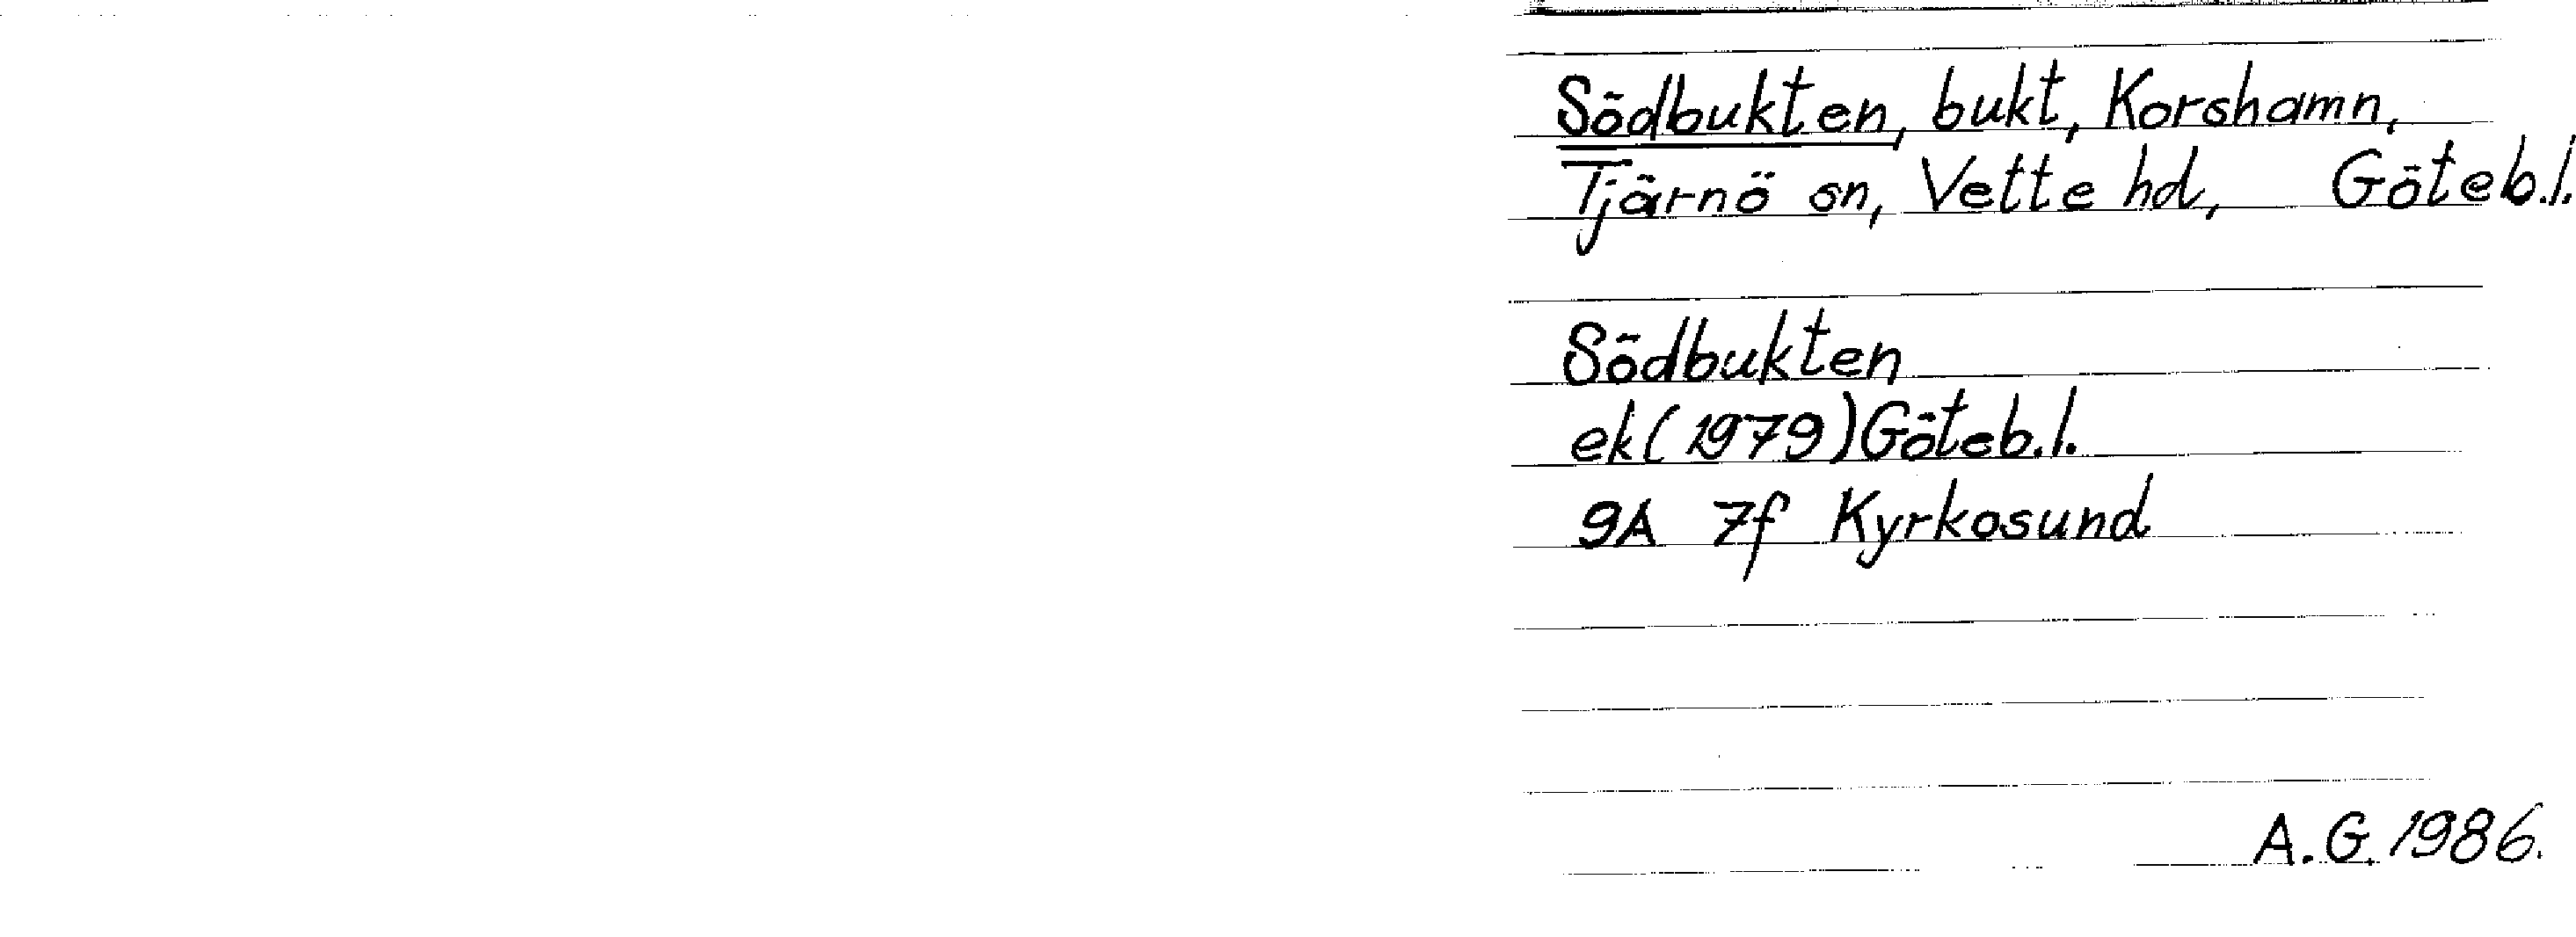 Södbukten, bukt, Korshamn,
Tjärnö sn, Vette hd, Göteb.l.
Södbukten
ek(1979)Göteb.l.
9A 7f Kyrkosund
A.G. 1986.